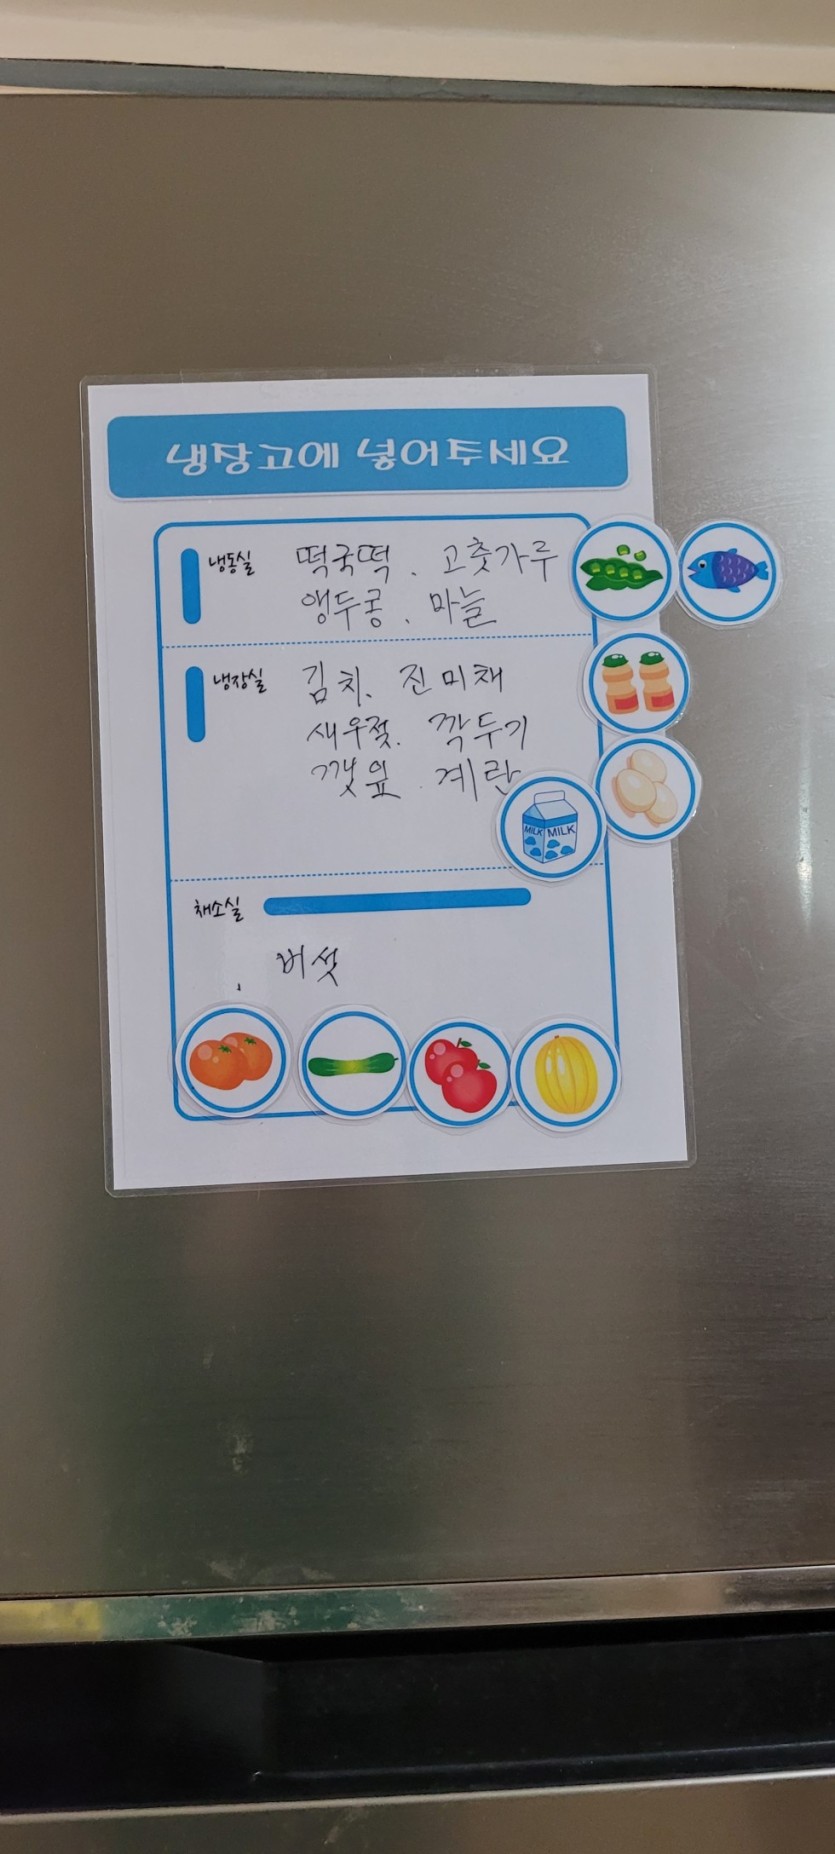 냉장고에 넣어두세요
냉동실 떡국떡 . 고춧가루
앵두콩 . 마늘
냉장실 김치. 진미채
새우젓. 깍두기
깻잎 . 계란
MILK MILK
채소실
. 버섯